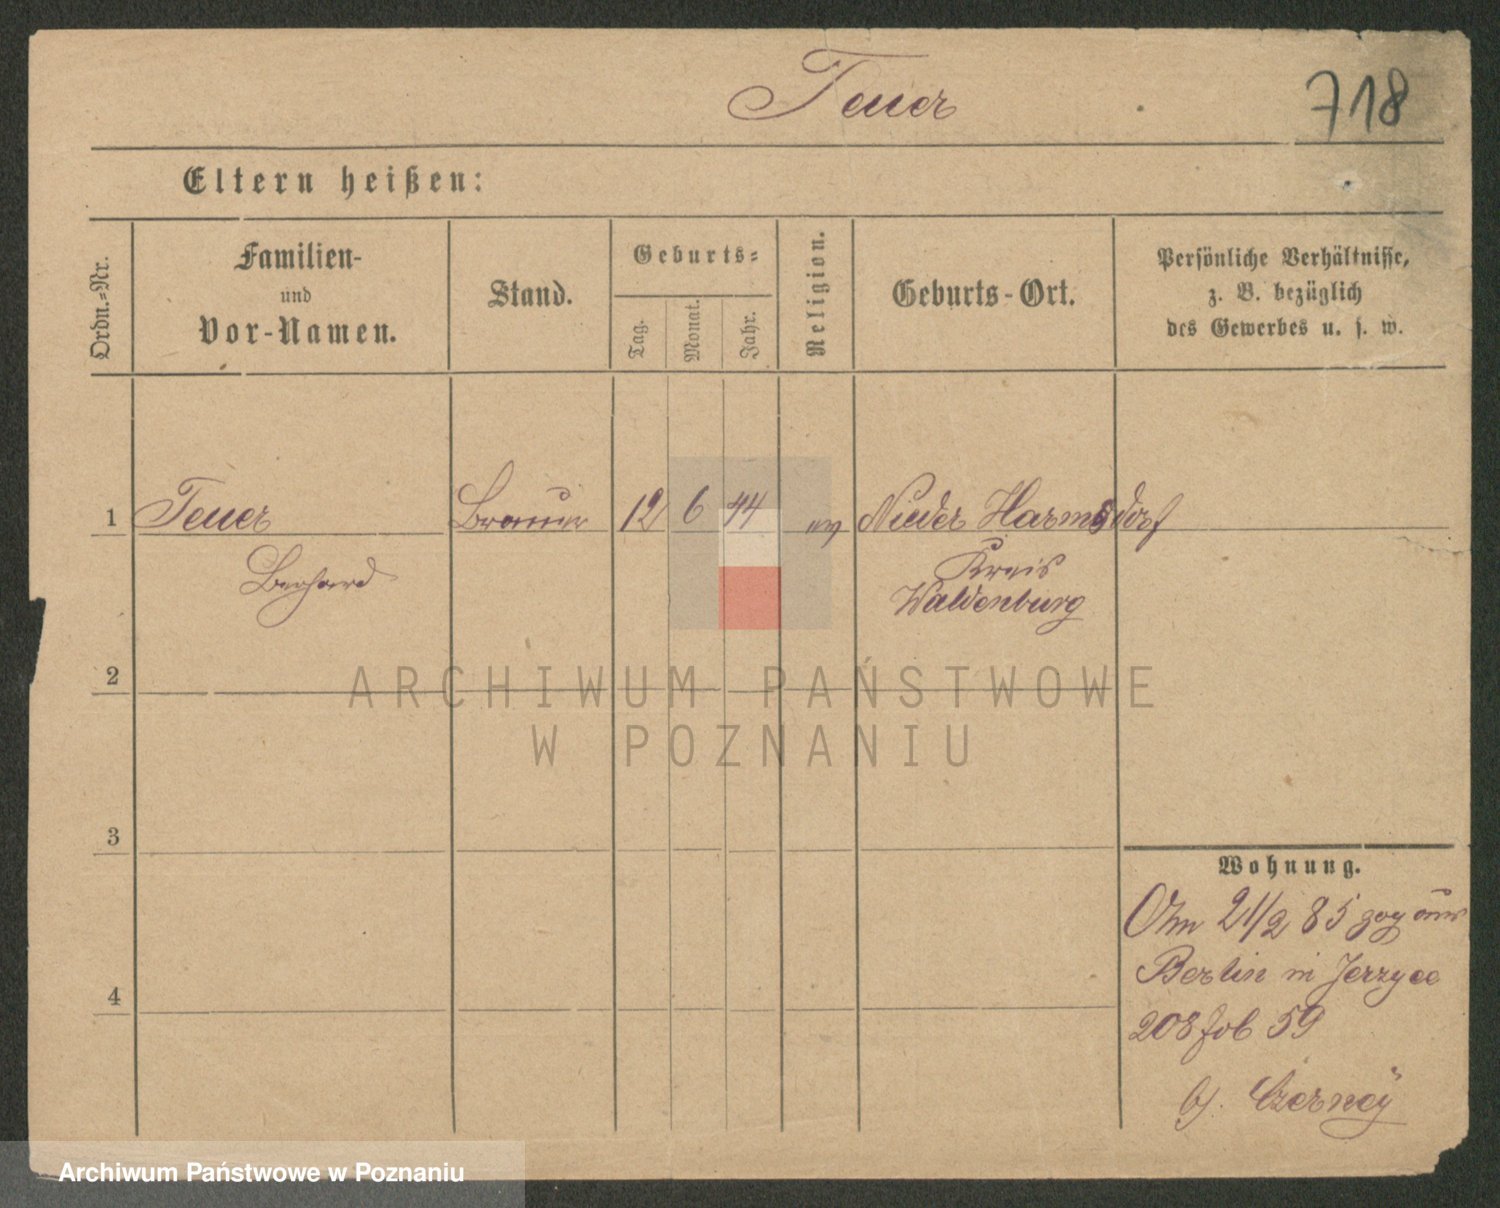 Teuer
718
Eltern heißen:
Ordn.-Nr.
Familien-
und
Vor-Namen.
Stand.
Geburts-
Tag.
Monat.
Jahr.
Religion.
Geburts-Ort.
Persönliche Verhältnisse,
z. B. bezüglich
des Gewerbes u. s. w.
1 Teuer Brauer 12 6 44 ev Nieder Harmsdorf
Berhard
Kreis
Waldenburg
2
ARCHIWUM PAŃSTWOWE
W POZNANIU
3
Wohnung.
21/2 85 zog aus
Berlin in Jerzyce
208 59
b/. Czernoy
4
Archiwum Państwowe w Poznaniu